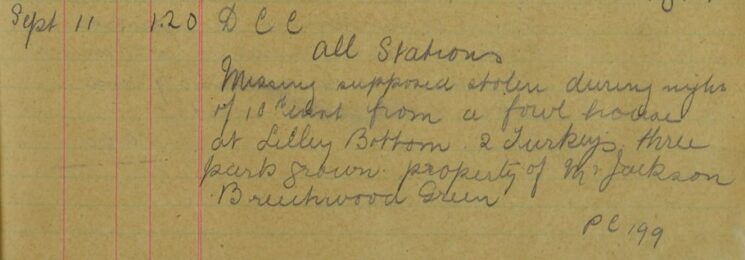 Sept 11 1.20 D C C
All Stations
Missing supposed stolen during night
of 10th inst from a fowl house
at Lilley Bottom. 2 Turkeys three
parts grown. property of Mr Jackson
Breechwood Green
PC 199